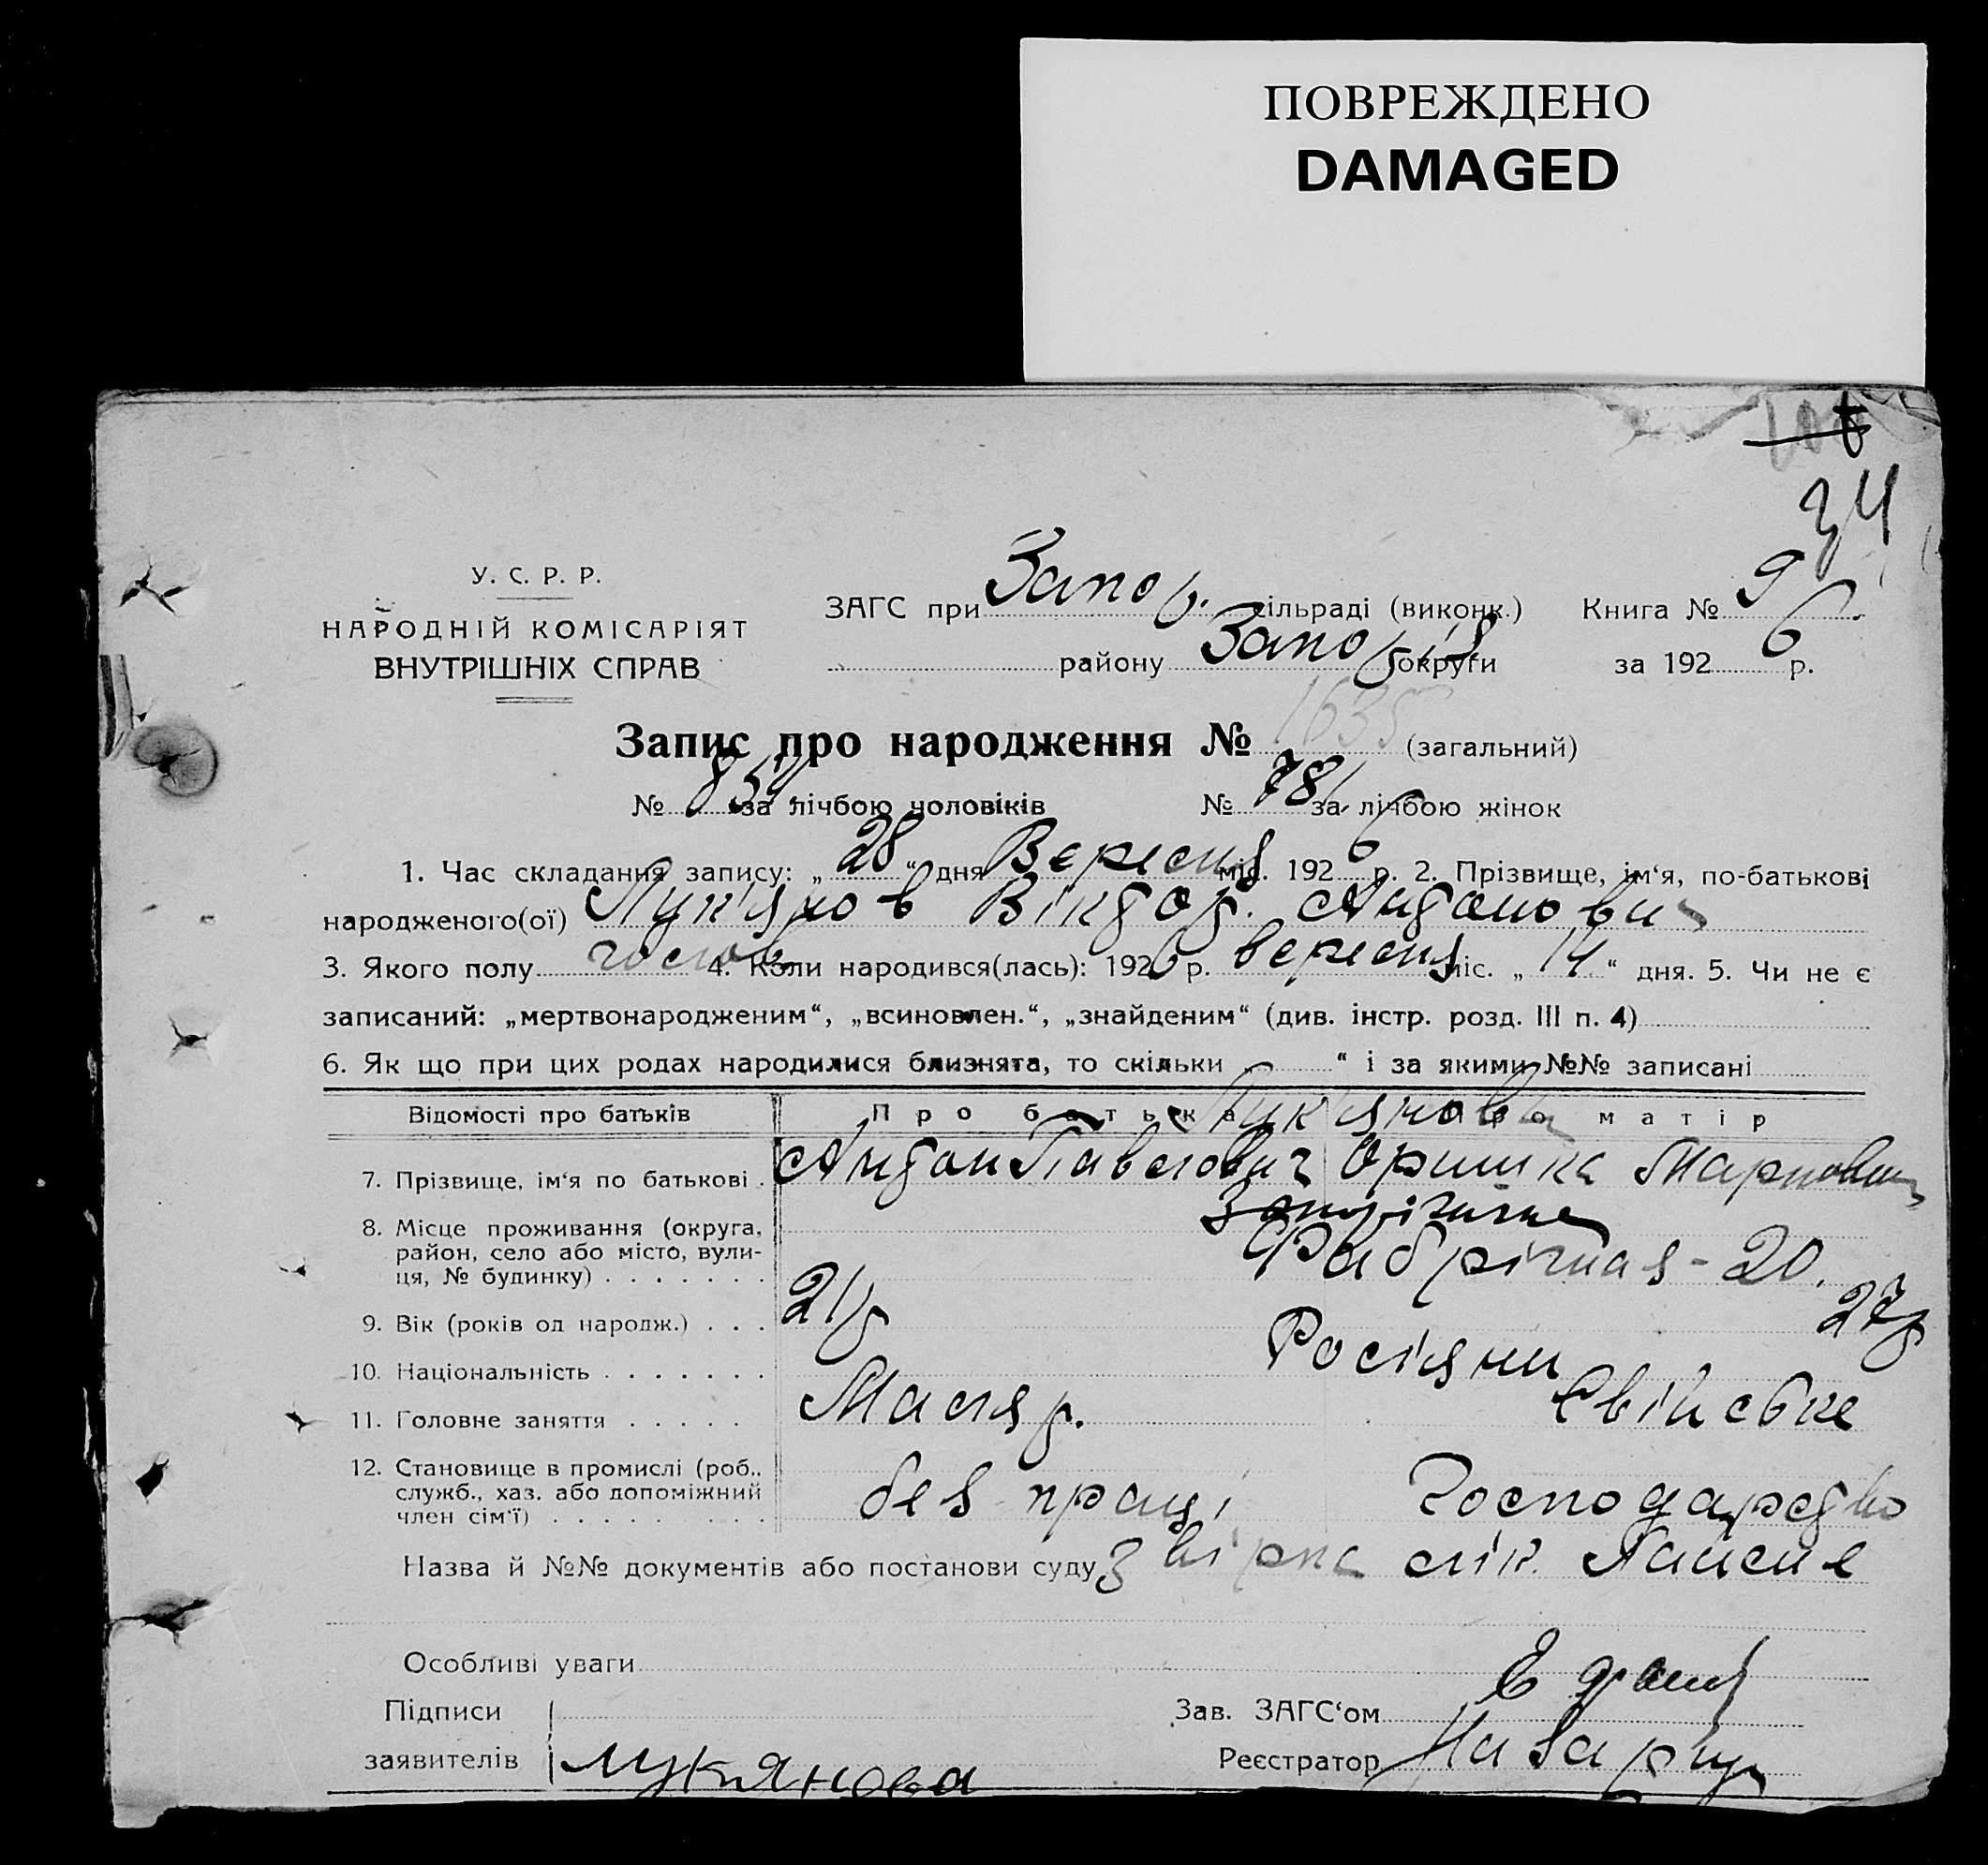 ПОВРЕЖДЕНО
DAMAGED
34
У. С. Р. Р.
НАРОДНІЙ КОМІСАРІЯТ
ВНУТРІШНІХ СПРАВ
ЗАГС при Запор. сільраді (виконк.) Книга № 9
району Запоріз округи за 1926 р.
Запис про народження № 1635 (загальний)
№ 854 за лічбою чоловіків № 781 за лічбою жінок
1. Час складання запису: „28“ дня Вересня міс. 1926 р. 2. Прізвище, ім‘я, по-батькові
народженого(ої) Лукʼянов Віктор. Антонович
3. Якого полу чолов 4. Коли народився(лась): 1926 р. вересня міс. „14“ дня. 5. Чи не є
записаний: „мертвонародженим“, „всиновлен.“, „знайденим“ (див. інстр. розд. III п. 4)
6. Як що при цих родах народилися близнята, то скільки “ і за якими №№ записані
Відомості про батьків Про батька Про матір
Лукʼянови
7. Прізвище, ім‘я по батькові Антон Павлович Оришка Марковна
8. Місце проживання (округа, район, село або місто, вулиця, № будинку) Запоріжжя
Фабрічная - 20.
9. Вік (років од народж.) 21р 27р
10. Національність Росіяни
11. Головне заняття Маляр. Свійське
12. Становище в промислі (роб., служб., хаз. або допоміжний член сім'ї) без праці Господарство
Назва й №№ документів або постанови суду Звірка лік.
Особливі уваги
Підписи Зав. ЗАГС‘ом
заявителів Лукянова Реєстратор